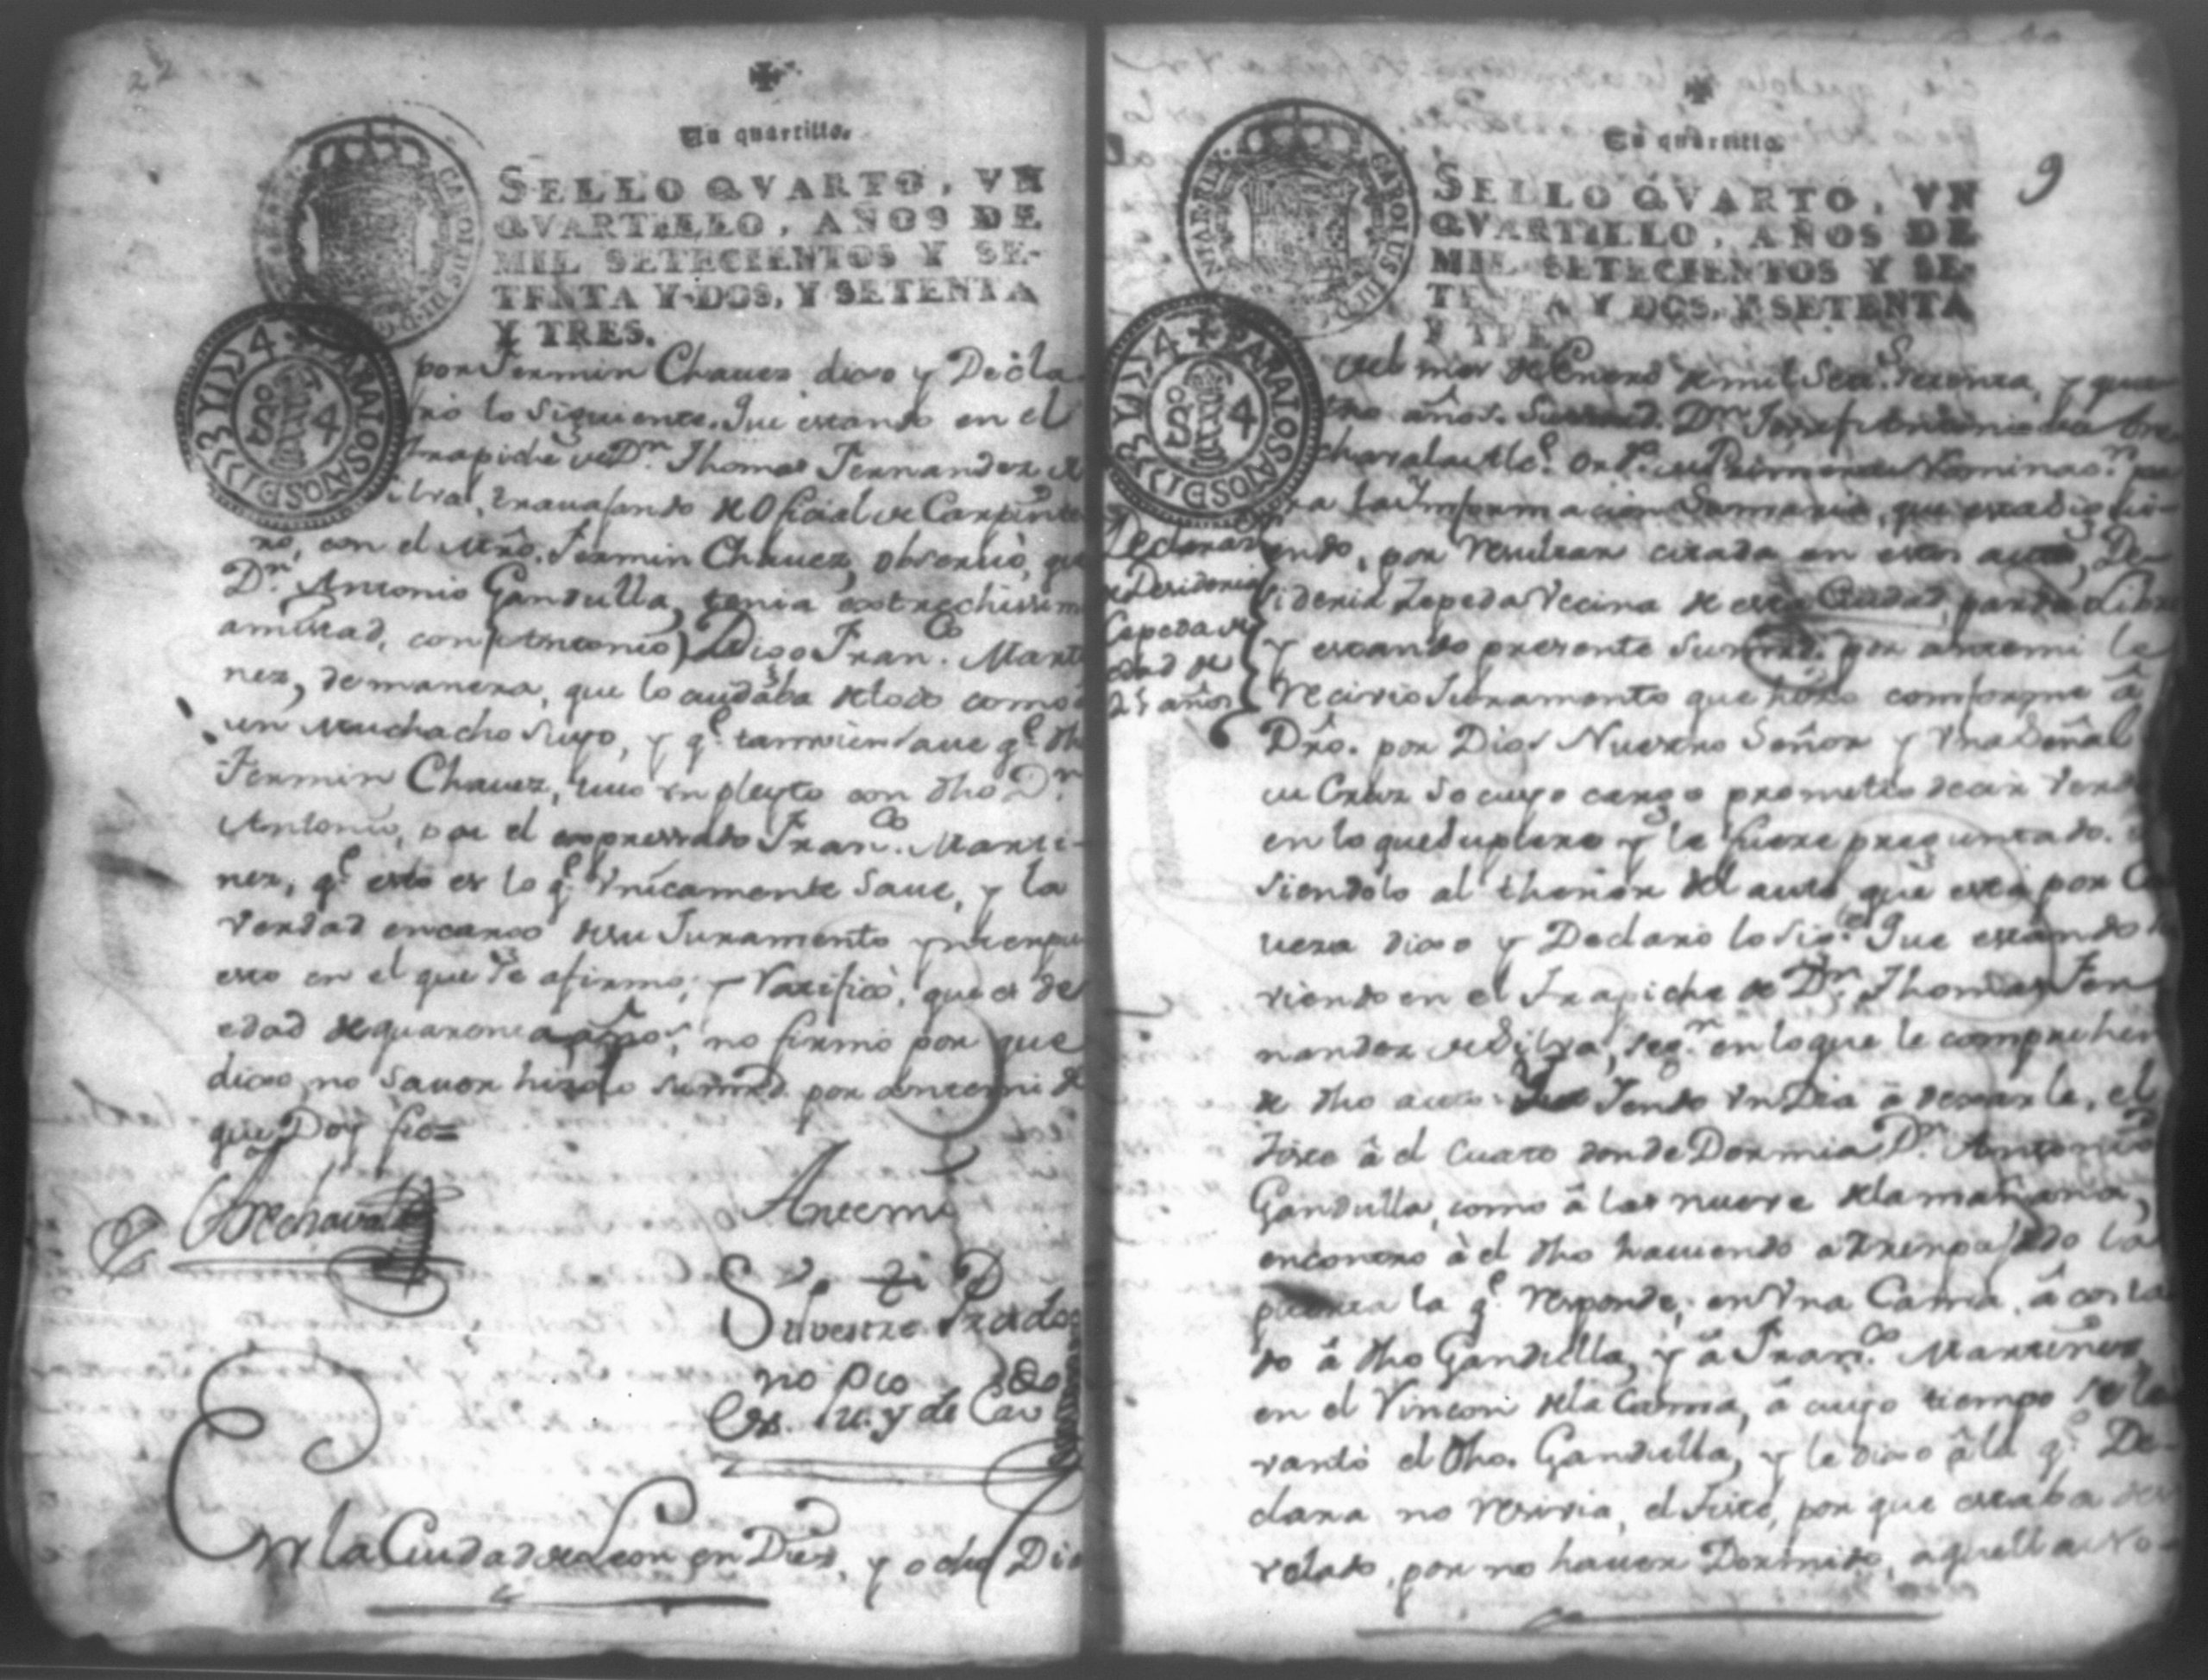 22
Un quartillo.
SELLO QVARTO, VN
QVARTILLO, AÑOS DE
MIL SETECIENTOS Y SE-
TENTA Y DOS, Y SETENTA
Y TRES.
por Fermin Chauez dixo y Decla
rò lo siguiente. Que estando en el
trapiche de Dn. Thomas Fernandez de
Silva, trauajando de Oficial de Carpinte
ro, con el Mro. Fermin Chauez, obseruò, que
Dn. Antonio Gandulla, tenia extrechissima
amistad, con (Antonio) Digo Franco. Marti
nez, de manera, que lo cuidaba de todo como à
un Muchacho suyo, y qe. tamvien saue qe. dho
Fermin Chauez, tuuo un pleyto con dho Dn.
Antonio, por el expressado Franco. Marti-
nez, qe. esto es lo qe. Vnicamente Saue, y la
Verdad encargo desu Juramento
esto en el que se afirmo, y Ratificò, que es de
edad de quarenta años, no firmó por que
dixo no Sauer hizolo sumrd. por Antemi de
que Doy fee=
Arechavala
Antemi
Siluestre Prado
no pco
Es. pu. y de Cav
En la Ciudad de Leon en Diez, y ocho Dias
9
Un quartillo.
SELLO QVARTO, VN
QVARTILLO, AÑOS DE
MIL SETECIENTOS Y SE-
TENTA Y DOS, Y SETENTA
Y TRES
del mes de Enero de mil Setes. Setenta, y qua
tro años. Sumrd. Dn. Josef Antonio de Are
chavala Alce. Ordo. de Primera Nominacn. pa
ra la Informacion Sumaria, que esta siguie-
endo, por Resultar citada en estos autos, De-
sideria Zepeda Vecina de esta Ciudad, parda Libre
y estando presente Sumrd. por antemi le
reciuio Juramento que hizo conforme à
Dro. por Dios Nuestro Señor y Vna Señal
de Cruz So cuyo cargo prometio decir Verdad
en lo que Supiere y le fuere preguntado.
siendolo al thenor del auto que està por Ca
uera dixo y Declarò lo Sigte. Que estando
viendo en el Trapiche de Dn. Thomas Fer
nandez de Silva, segn. en lo que le comprehen
de dho auto. Yendo Vn Dia à dexarle, el
Jixte à el Cuarto donde Dormia Dn. Antonio
Gandulla, como à las nueve de la mañana,
encontro à el dho hauiendo la
puerta la qe. responde, en Vna Cama, à costa
do à dho Gandulla, y à Franco. Martinez
en el Rincon de la Cama, à cuyo tiempo se le
vantò el dho. Gandulla, y le dixo à la qe. De-
clara no Resiuia, el Jixte, por que estaba des
velado, por no hauer Dormido, aquella no-
Declaracn.
de Desideria
Cepeda de
edad de
25 años
CAROLUS III D G
HISPANIAR REX
PARA LOS AÑOS DE 1773 Y 1774
SO 4